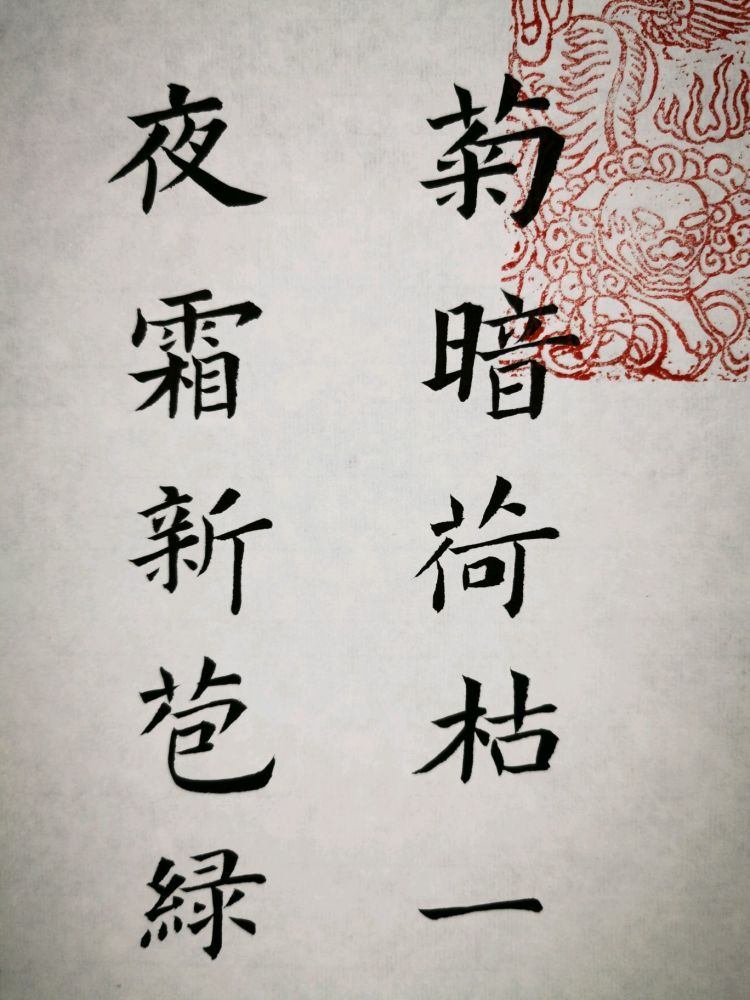 菊暗荷枯一
夜霜新苞緑